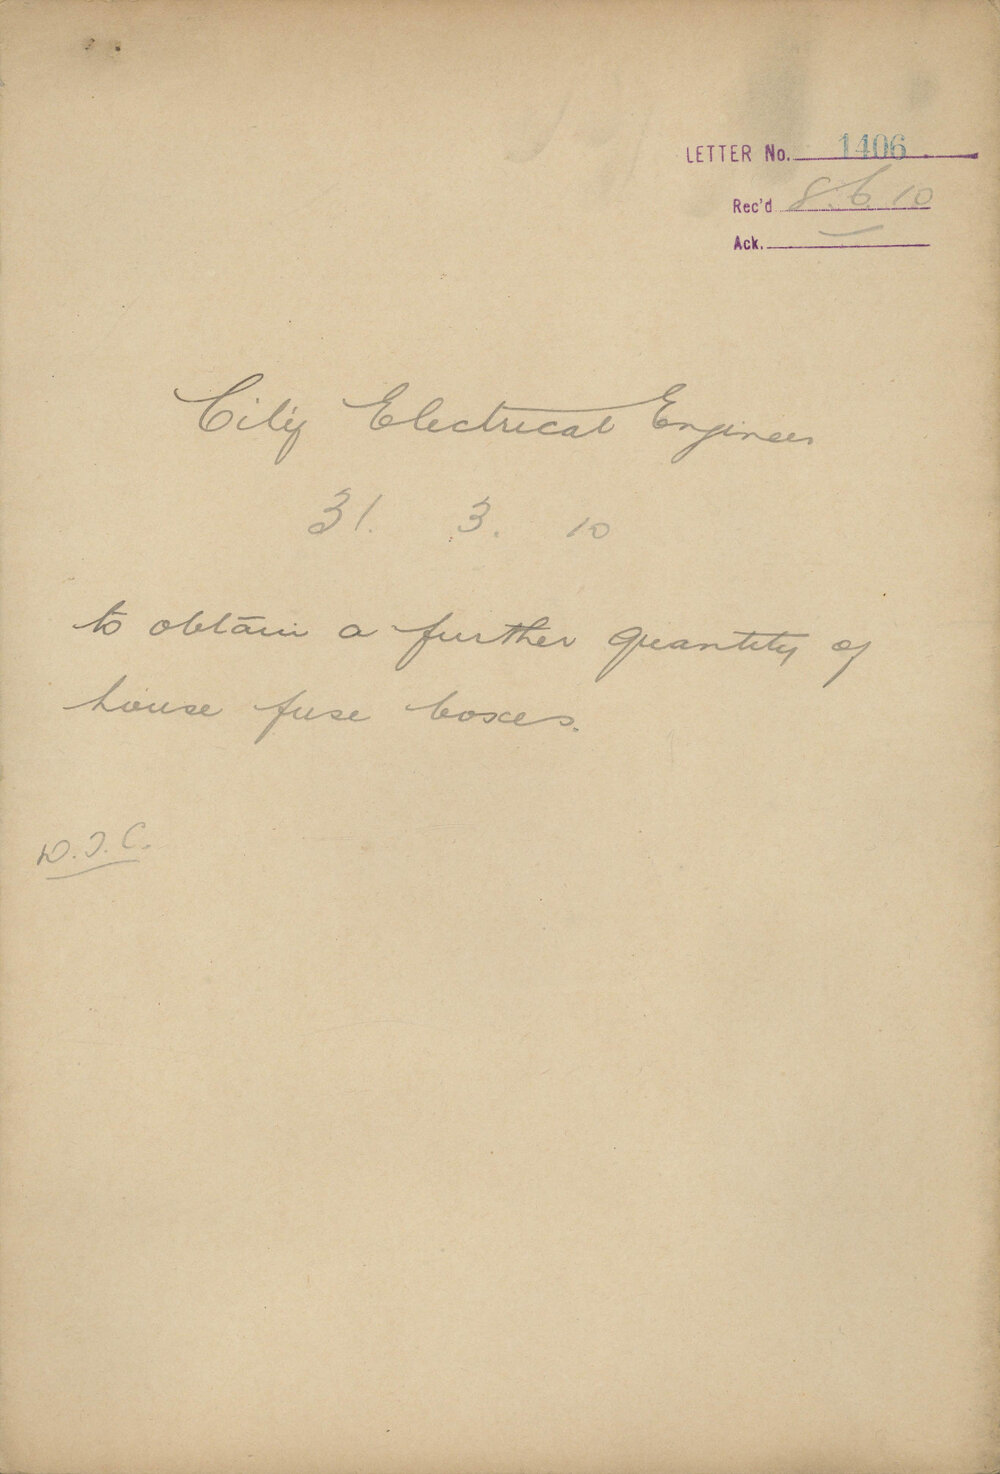 LETTER No. 1406
Rec'd 8.6.10
Ack.
City Electrical Engineer
31. 3. 10
to obtain a further quantity of
house fuse boxes.
W.J.C.